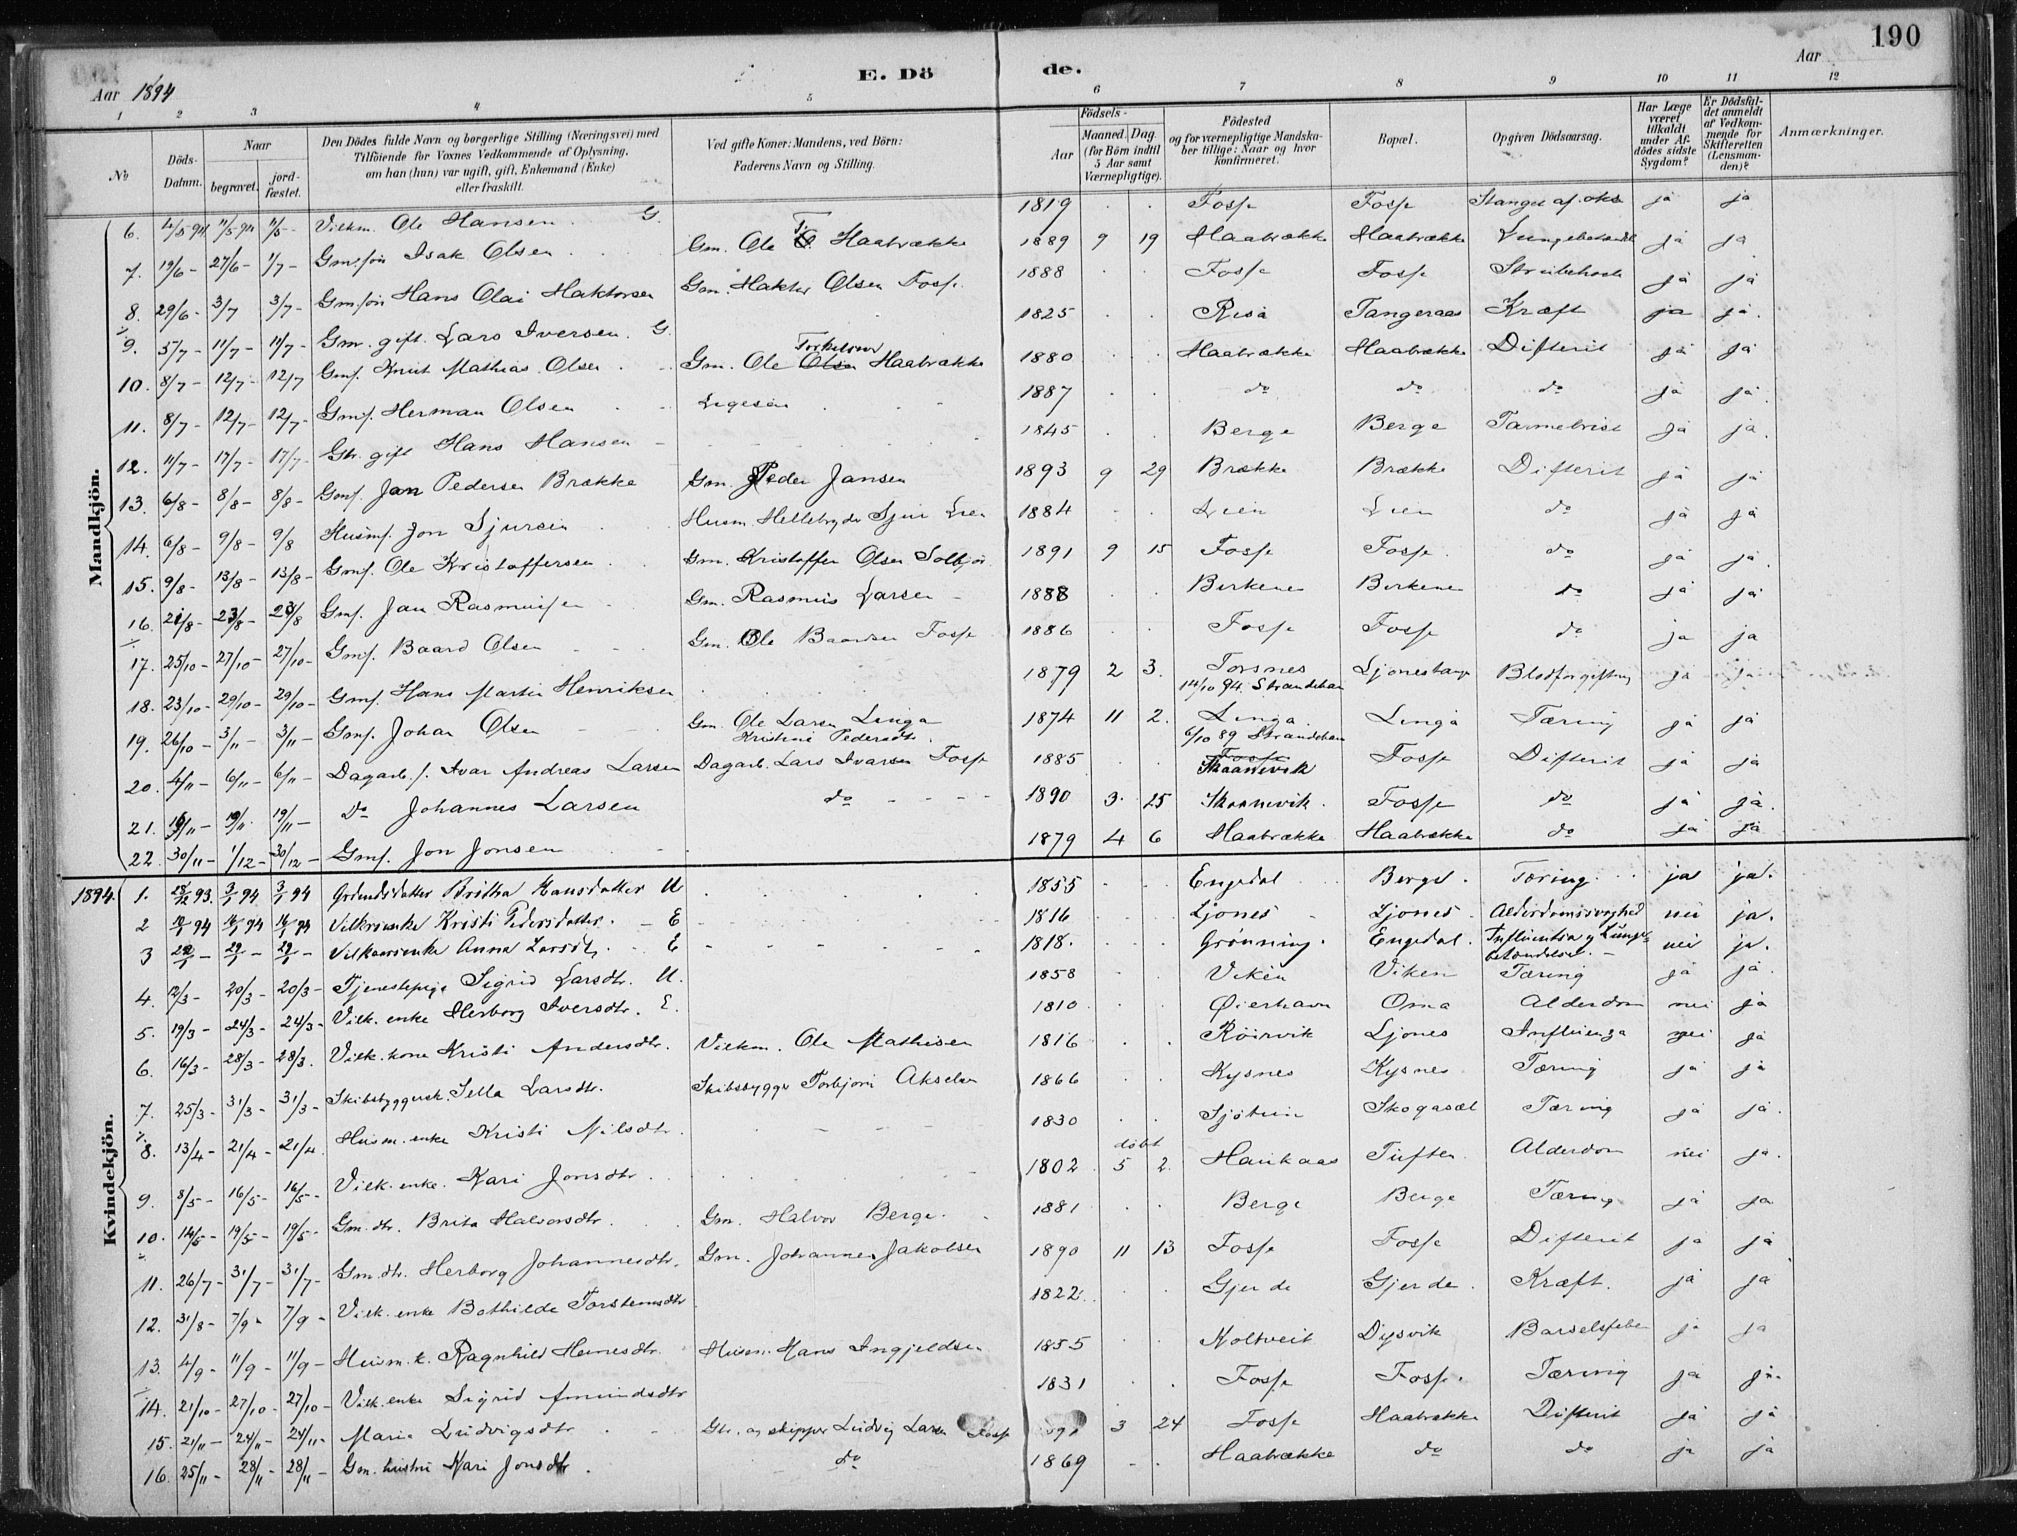 190
E. Dö de.
Aar 1894
Aar
1 2 3 4 5 6 7 8 9 10 11 12
No
Döds-Datum.
Naar
begravet. jord-fæstet.
Den Dödes fulde Navn og borgerlige Stilling (Næringsvei) med
Tilföiende for Voxnes Vedkommende af Oplysning,
om han (hun) var ugift, gift, Enkemand (Enke)
eller fraskilt.
Ved gifte Koner: Mandens, ved Börn:
Faderens Navn og Stilling.
Födsels-
Aar Maaned. Dag.
(for Börn indtil 5 Aar samt Værnepligtige).
Födested
og for værnepligtige Mandska-
ber tillige: Naar og hvor
konfirmeret.
Bopæl.
Opgiven Dödsaarsag.
Har Læge været tilkaldt under Af-dödes sidste Sygdom?
Er Dödsfal-det anmeldt af Vedkom-mende for Skifteretten (Lensman-den)?
Anmærkninger.
Mandkjön.
6. 4/5-94 11/5-94 11/5- Vilkm. Ole Hansen G. 1819 Fosse Fosse Stanget af okse ja ja
7. 19/6- 27/6- 1/7- Gm.søn Isak Olsen Gm. Ole T. Haabrække 1889 9 19 Haabrække Haabrække Lungebetændt ja ja
8. 29/6- 3/7 3/7- Gm.søn Hans Olai Haktorsen Gm. Haktor Olsen Fosse 1888 Fosse Fosse Strubehoste ja ja
9. 5/7- 11/7- 11/7- Gm. gift. Lars Iversen. G. 1825 Risa Tangeraas Kræft ja ja.
10. 8/7- 12/7- 12/7 Gms. Knut Mathias Olsen Gm. Ole Olsen Torkelsen Haabrække 1880 Haabrække Haabrække Difterit ja ja
11. 8/7- 12/7- 12/7- Gms. Herman Olsen Ligesaa 1887 do do do ja ja.
12. 11/7- 17/7- 17/7- Gbr. gift Hans Hansen 1845 Berge Berge Tarmebrist ja ja.
13. 6/8- 8/8- 8/8- Gms. Jan Pedersen Brække Gm. Peder Jansen 1893 9 29 Brække Brække Difterit ja ja
14. 6/8- 9/8- 9/8 Husms. Jon Sjursen Husm. Sjur Lien 1884 Lien Lien do ja ja
15. 9/8- 13/8- 13/8- Gms. Ole Kristoffersen Gm. Kristoffer Olsen Solbjør 1891 9 15 Fosse Fosse do ja ja.
16. 21/8- 23/8- 23/8 Gms. Jan Rasmussen Gm. Rasmus Larsen 1888 Birkenes Birkenes do ja ja
17. 25/10- 27/10- 27/10- Gms. Baard Olsen Gm. Ole Baardsen Fosse 1886 Fosse Fosse do ja ja
18. 23/10- 29/10- 29/10- Gms. Hans Martin Henriksen 1879 2 3. Torsnes 14/10 94. Strandebarm Ljonestangen Blodforgiftning ja ja
19. 26/10- 3/11- 3/11- Gms. Johan Olsen Gm. Ole Larsen Linga Kristine Pedersdtr. 1874 11 2. Linga 6/10 89 Strandebarm Linga Tæring ja ja
20. 4/11- 6/11- 6/11- Dagarb.s. Ivar Andreas Larsen Dagarb. Lars Ivarsen Fosse 1885 Fosse Skaanevik Fosse Difterit ja ja
21. 16/11- 19/11- 19/11- do Johannes Larsen do 1890 3. 25 Skaanevik. Fosse do ja ja.
22. 30/11- 1/12- 30/12- Gms. Jon Jonsen 1879 4 6 Haabrække Haabrække do ja ja
1894
Kvindekjön.
1. 28/12 93. 3/1 94 3/1 94 Grdmdsdatter Britha Hansdatter U 1855 Engedal Berge. Tæring ja ja.
2 12/1 94 16/1 94 16/1 94 Vilkrsenke Kristi Pedersdatter. E 1816 Ljones Ljones Alderdomssvaghed nei ja.
3 22/1 - 29/1 - 29/1 - Vilkaarsenke Anna Larsdt. E 1818. Grønning. Engedal. Influentsa og Lunge-betændelse. nei ja.
4. 12/3- 20/3- 20/3- Tjenestepige Sigrid Larsdtr. U. 1858 Viken Viken Tæring ja ja
5. 19/3- 24/3- 24/3- Vilk. enke Herborg Iversdtr. E. 1810 Øierhavn Oma Alderdom nei ja
6. 16/3- 28/3- 28/3. Vilk. kone Kristi Andersdtr. Vilkm. Ole Mathisen 1816 Røirvik Ljones Influenza nei ja
7. 25/3- 31/3- 31/3- Skibsbyggersk. Sella Larsdtr. Skibsbygger Torbjørn Akselsen 1866 Kysnes Kysnes Tæring ja ja
8. 13/4- 21/4- 21/4. Husm. enke Kristi Nilsdtr. 1830 Sjøtun Skogasæl Tæring ja ja.
9. 8/5- 16/5- 16/5- Vilk. enke. Kari Jonsdtr. 1802 døbt 5 2. Haukaas Tuften Alderdom nei ja.
10. 14/5- 19/5- 19/5- Gm. dtr. Brita Halvorsdtr. Gm. Halvor Berge. 1881 Berge Berge Tæring ja ja
11. 26/7- 31/7- 31/7- Gm. dtr. Herborg Johannesdtr. Gm. Johannes Jakobsen 1890 11 13 Fosse Fosse Difterit ja ja
12. 31/8- 7/9- 7/9- Vilk. enke Bothilde Torstensdtr 1822 Gjerde Gjerde Kræft. ja ja
13. 4/9- 11/9- 11/9- Husm. k. Ragnhild Heinesdtr. Husm. Hans Ingjeldsen 1855 Holtveit Dysvik Barselsfeber ja ja
14. 21/10- 27/10- 27/10- Vilk. enke Sigrid Amundsdtr 1831 Fosse Fosse. Tæring ja ja.
15. 21/11- 24/11- 24/11- Marie Ludvigsdtr Gbr. og skipper Ludvig Larsen Fosse 3 24 Fosse Haabrække Difterit ja ja
16. 25/11- 28/11- 28/11- Gm. hustru Kari Jonsdtr. do 1869 Haabrække do do ja ja